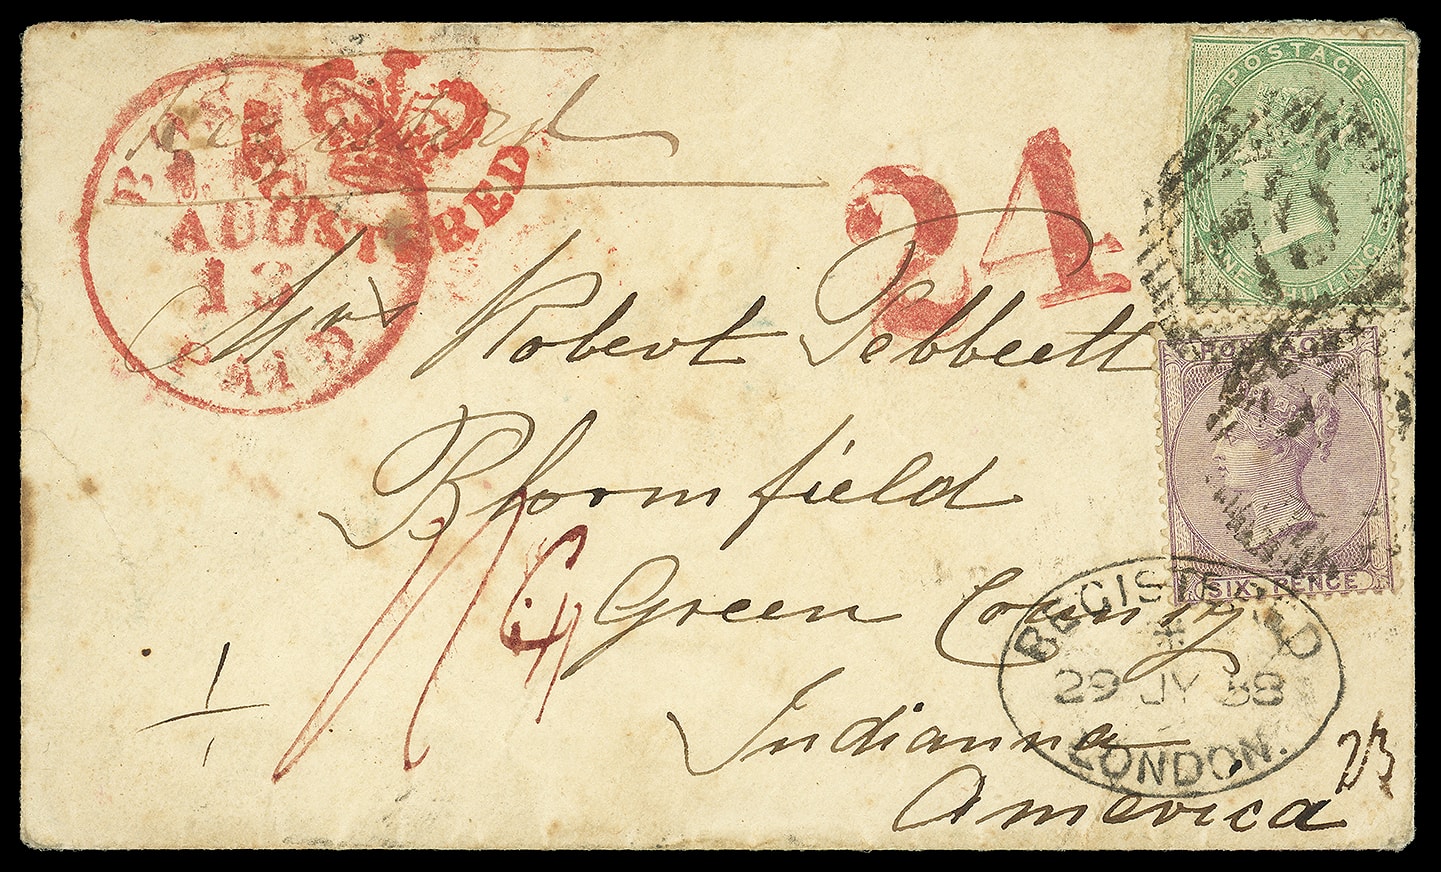 Registered
REGISTERED
AUG
13
PAID
24
POSTAGE
ONE SHILLING
POSTAGE
SIX PENCE
Mrs Robert Tebbett
Bloomfield
Green County
Indianna
America
REGISTERED
29 JY 58
LONDON.